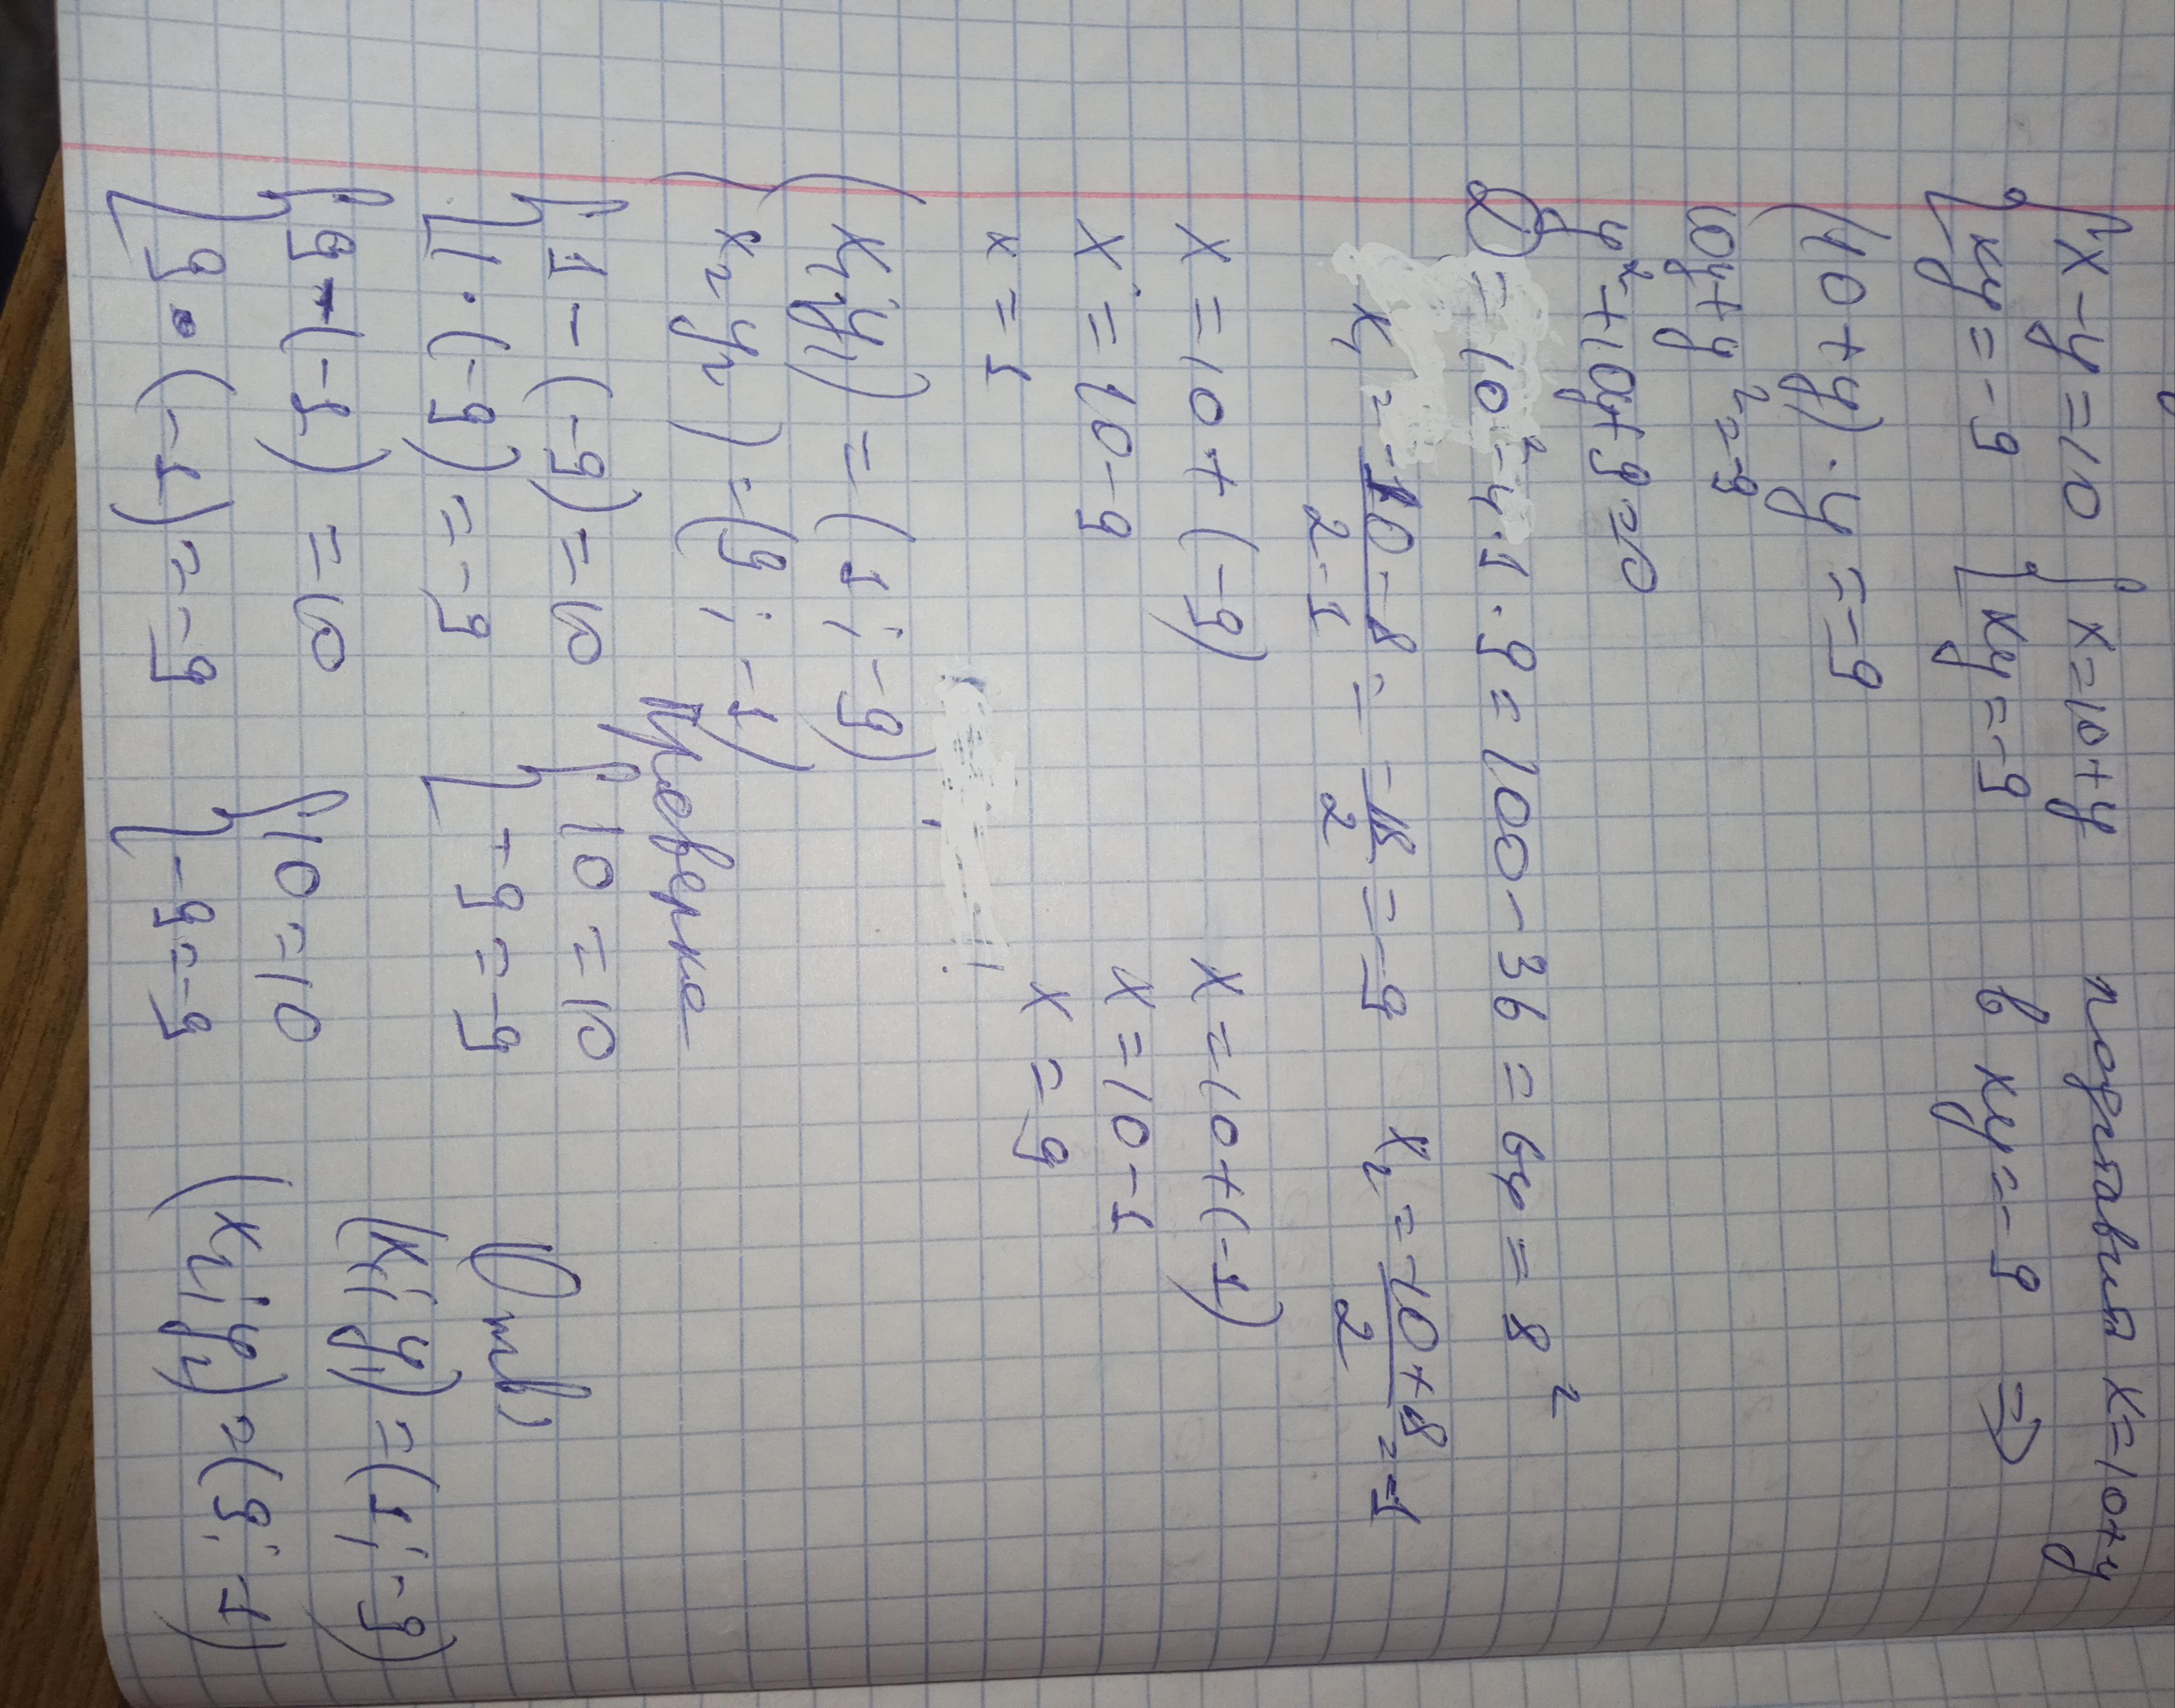 {x-y=10 {x=10+y подставил x=10+y
{xy=-9 {xy=-9 в xy=-9 ⇒
(10+y)·y=-9
10y+y²=-9
y²+10y+9=0
D=10²-4·1·9=100-36=64=8²
x₁=-10-8/2·1=-18/2=-9 x₂=-10+8/2=-1
x=10+(-9) x=10+(-1)
x=10-9 x=10-1
x=1 x=9
(x₁;y₁)=(1;-9)
(x₂y₂)=(9;-1)
Проверка
{1-(-9)=10 {10=10
{1·(-9)=-9 {-9=-9 Отв:
{9-(-1)=10 {10=10 (x₁;y₁)=(1;-9)
{9·(-1)=-9 {-9=-9 (x₂;y₂)=(9;-1)